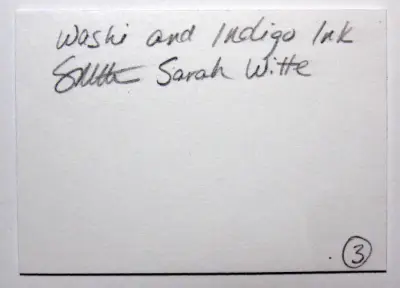 Washi and Indigo Ink
Sarah Witte
3